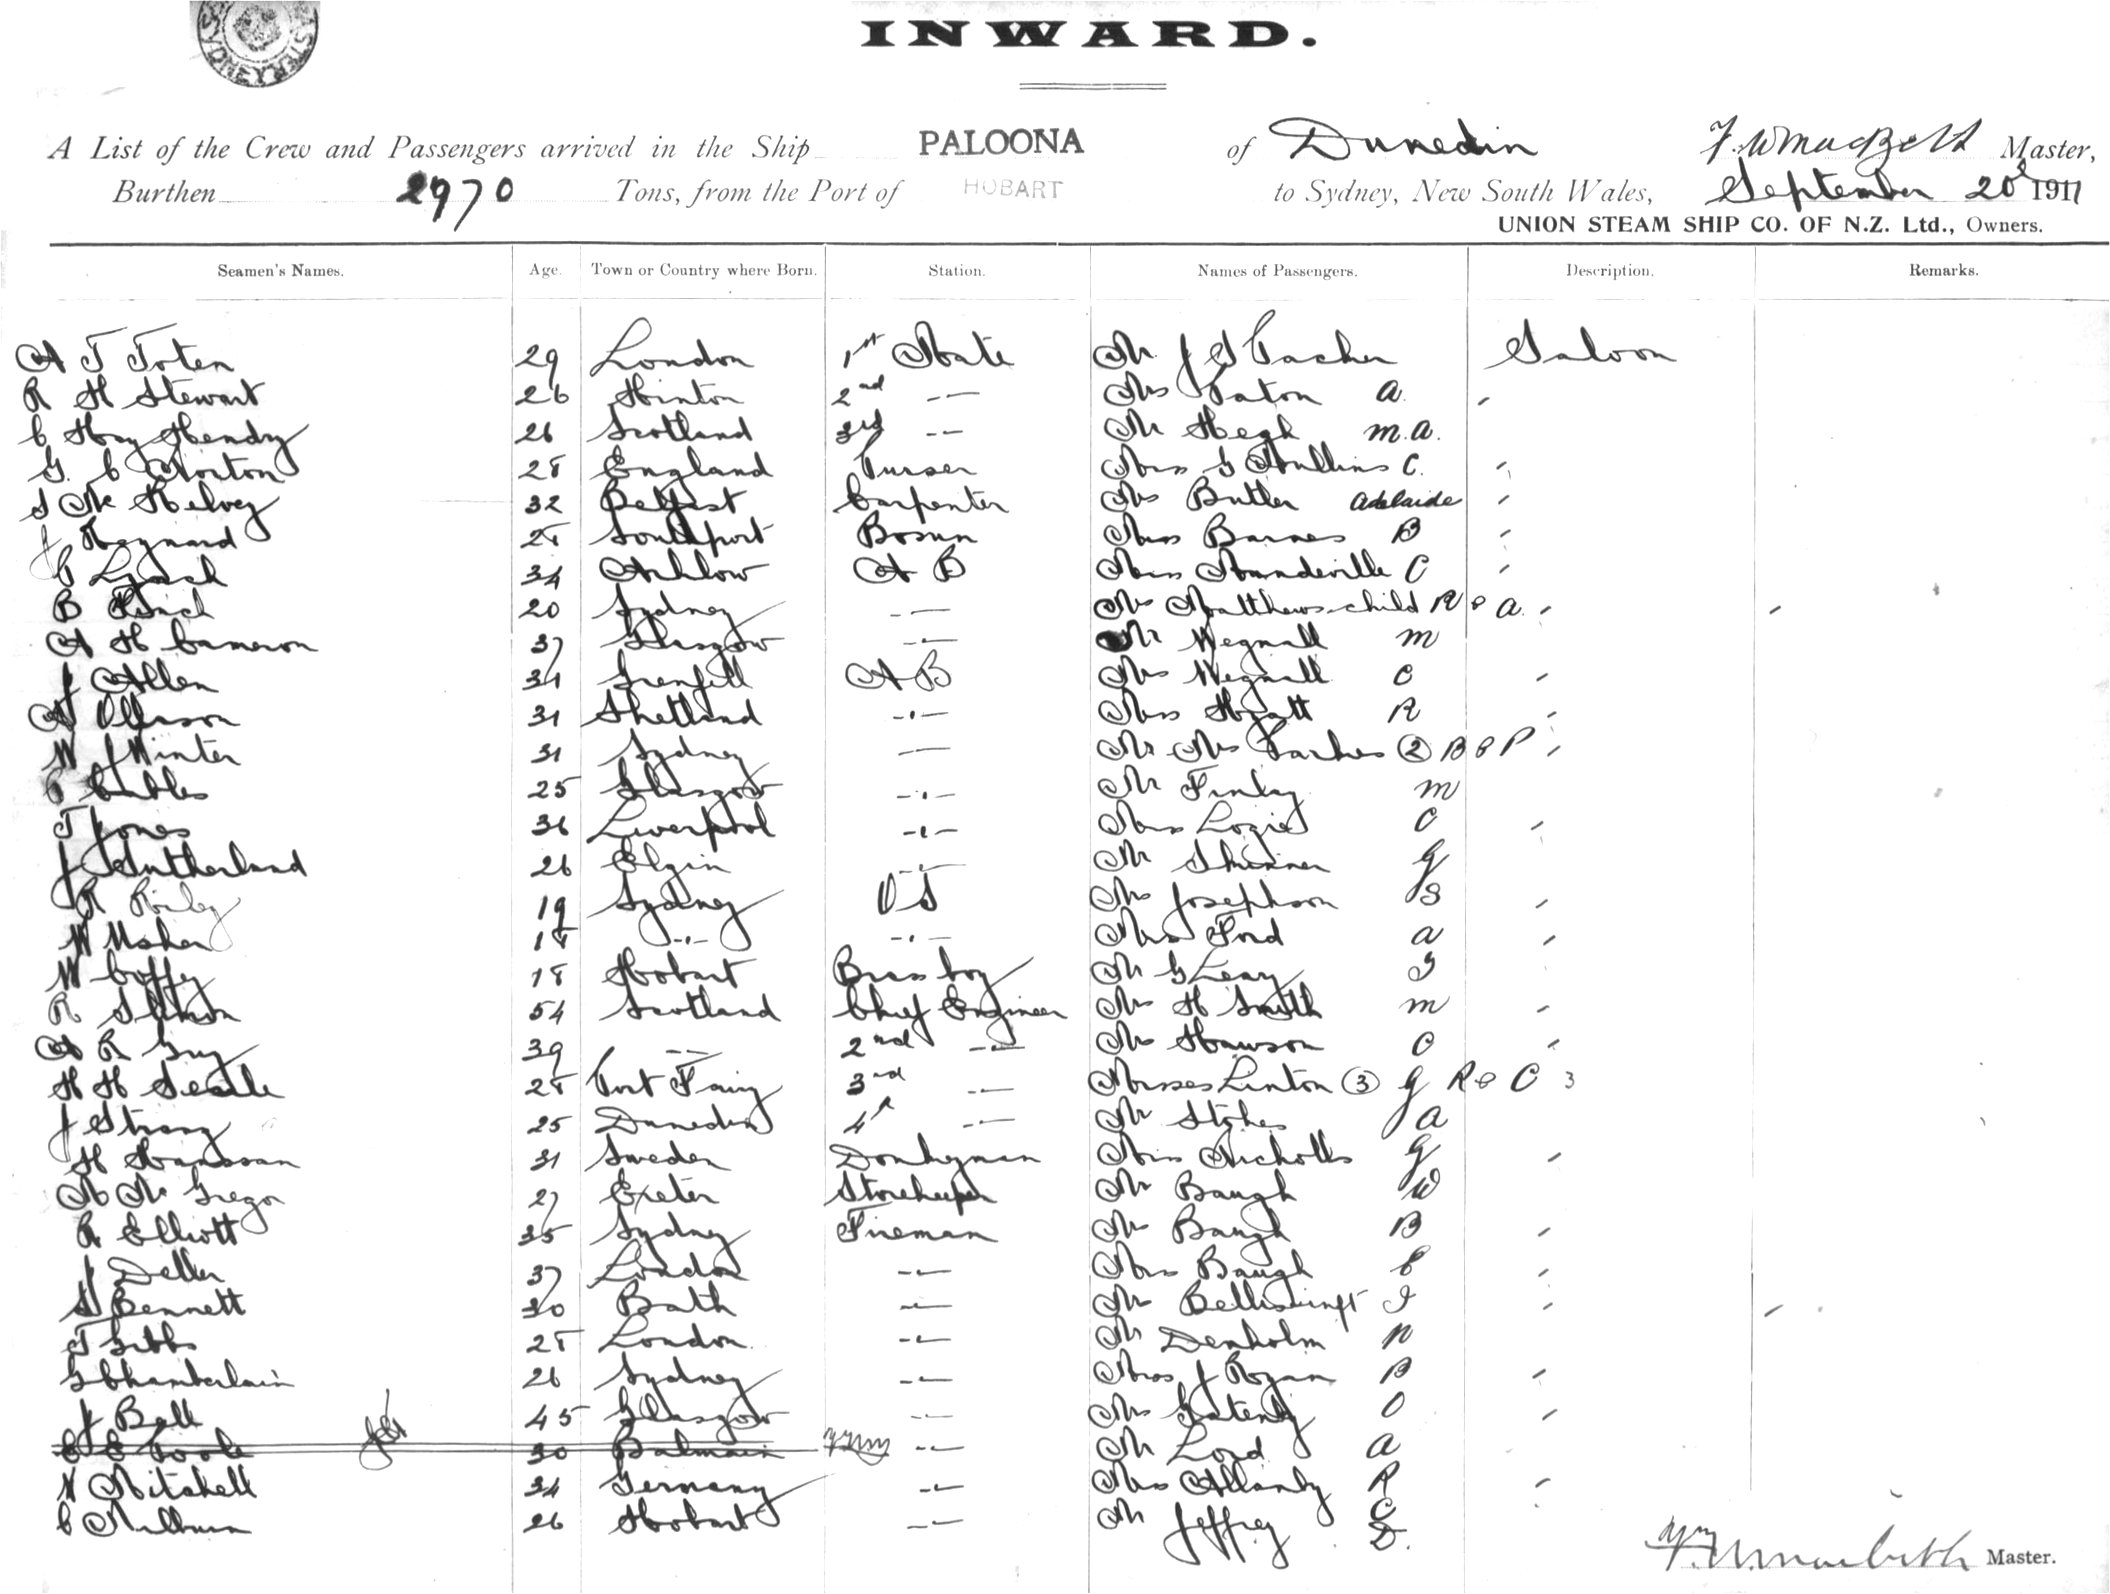 SYDNEY
INWARD.
A List of the Crew and Passengers arrived in the Ship PALOONA of Dunedin Master,
Burthen 2970 Tons, from the Port of HOBART to Sydney, New South Wales, September 20 1911
UNION STEAM SHIP CO. OF N.Z. Ltd., Owners.
Seamen's Names. Age. Town or Country where Born. Station. Names of Passengers. Description. Remarks.
A T Toten 29 London 1st Mate Mr J S Saloon
R H Stewart 26 Hinton 2nd -- Mrs Paton a
C Hay Hendry 26 Scotland 3rd -- Mr m.a.
G. C Norton 28 England Purser Miss G Mullins C.
S Mc Kelvey 32 Belfast Carpenter Mrs Butler Adelaide
J Haynard 28 Southport Bosun Miss Barnes B
C Lynch 34 A B Miss Mandeville C
B 20 Sydney -- Mrs Matthews child R & a
A H Cameron 37 Glasgow -- Mr Wegnall m
J Allen 31 Grenfell A B Mrs Wegnall C
A Ollason 31 Shetland -"- Miss Hyatt R
W J Winter 31 Sydney -- Mr Mrs Parkes 2 B & P
C Cubbles 25 Glasgow -"- Mr Finlay m
T Jones 36 Liverpool -"- Miss Logie C
J Sutherland 26 Elgin -"- Mr Skinner G
R Riley 19 Sydney O S Mrs Josephson B
W Usher 18 -"- -"- Miss Ford a
W Coffey 18 Hobart Brass boy Mr G Leary I
R 54 Scotland Chief Engineer Mrs H Smith m
A R Guy 39 -- 2nd -- Mrs Hawson C
H H Searle 28 Port Fairy 3rd -- Misses Linton 3 G R & C 3
J Strang 25 Dunedin 4th -- Mr Stokes a
H Hanssan 31 Sweden Donkeyman Miss Nicholls G
M Mc Gregor 27 Exeter Storekeeper Mr Baugh W
R Elliott 35 Sydney Fireman Mrs Baugh B
J Deller 37 London -- Miss Baugh C
S Bennett 30 Bath -- Mr I
T Gibbs 28 London -- Mr Denholm n
G Chamberlain 26 Sydney -- Miss J Ryan B
J Bell 45 Glasgow -- Mrs Gatenby O
C E Poole 30 Balmain -- Mr Lord a
N Mitchell 34 Germany -- Miss Allanby R
C Millman 26 Hobart -- Mr Jeffrey C
D.
Master.